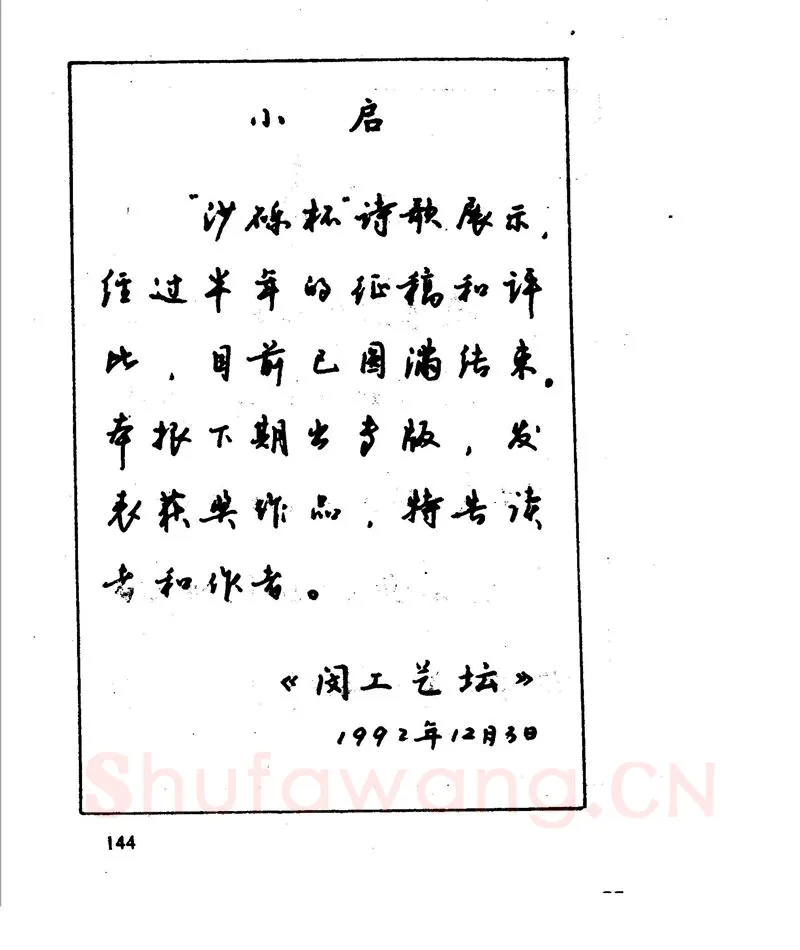 小 启
“沙砾杯”诗歌展示，
经过半年的征稿和评
比，目前已圆满结束。
本报下期出专版，发
表获奖作品，特告读
者和作者。
《闵工艺坛》
1992年12月3日
Shufawang.CN
144